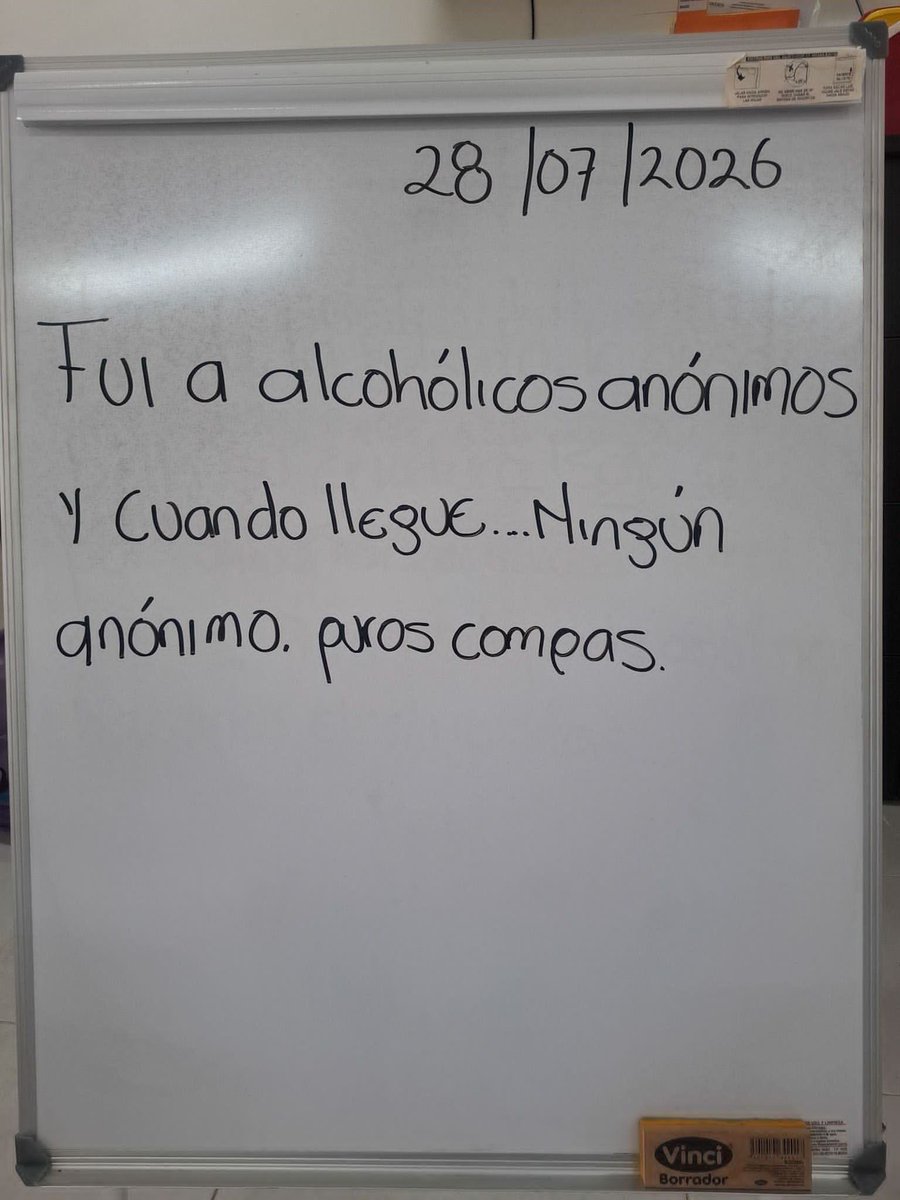 28/07/2026
Fui a alcohólicos anónimos
y cuando llegue...Ningún
anónimo. puros compas.
Vinci
Borrador